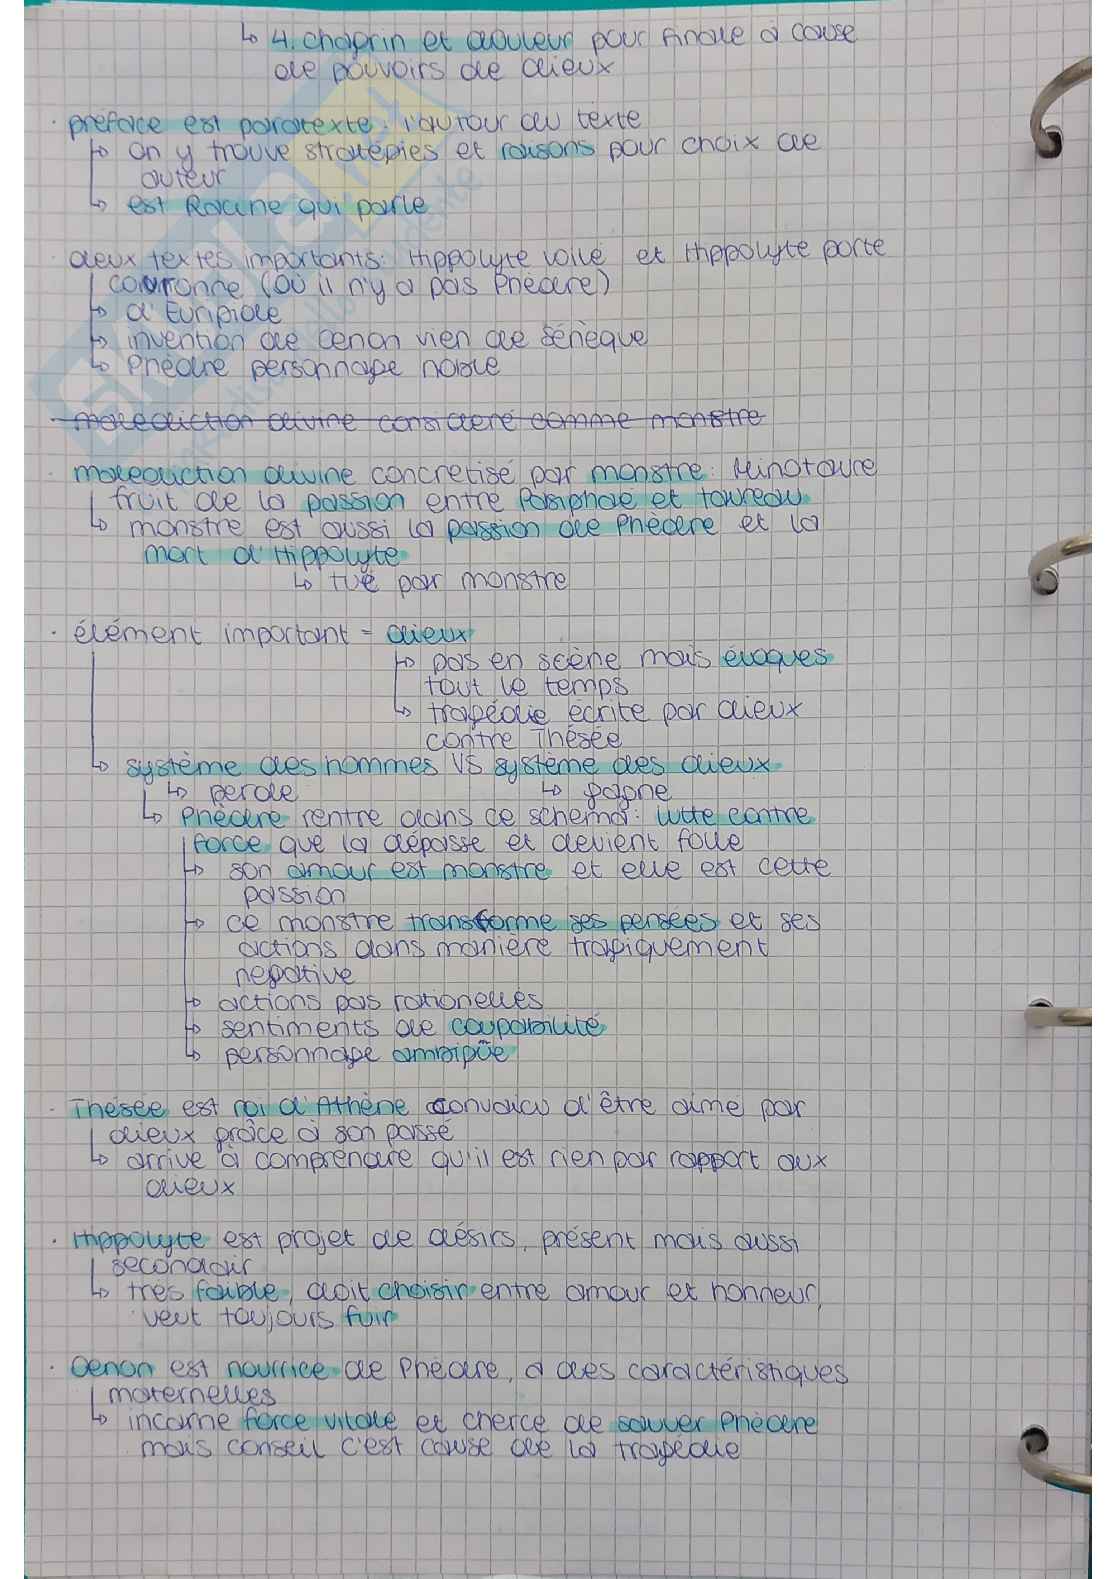 ↳ 4. chagrin et douleur pour finale à cause
de pouvoirs de dieux
· préface est paratexte: l'autour du texte
↳ on y trouve stratégies et raisons pour choix de
auteur
↳ est Racine qui parle
· deux textes importants: Hippolyte voilé et Hippolyte porte
couronne (où il n'y a pas Phèdre)
↳ d'Euripide
↳ invention de Oenon vien de Sénèque
↳ Phèdre personnage noble
malediction divine consideré comme monstre
· malediction divine concretisé par monstre: Minotaure
fruit de la passion entre Pasiphaé et taureau
↳ monstre est aussi la passion de Phèdre et la
mort d'Hippolyte
↳ tué par monstre
· élément important = dieux
↳ pas en scène mais évoqués
tout le temps
↳ tragédie écrite par dieux
contre Thésée
↳ système des hommes VS système des dieux
↳ perde ↳ gagne
↳ Phèdre rentre dans ce schema: lutte contre
force que la dépasse et devient folle
↳ son amour est monstre et elle est cette
passion
↳ ce monstre transforme ses pensées et ses
actions dans manière tragiquement
negative
↳ actions pas rationelles
↳ sentiments de coupabilité
↳ personnage ambigüe
· Thésée est roi d'Athène convaicu d'être aimé par
dieux grâce à son passé
↳ arrive à comprendre qu'il est rien par rapport aux
dieux
· Hippolyte est projet de désirs, présent mais aussi
secondair
↳ très faible, doit choisir entre amour et honneur,
veut toujours fuir
· Oenon est nourrice de Phèdre, a des caractéristiques
maternelles
↳ incarne force vitale et cherce de sauver Phèdre
mais conseil c'est cause de la tragédie